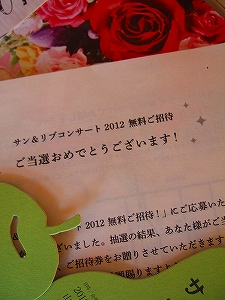 サン&リブコンサート2012 無料ご招待
ご当選おめでとうございます!
2012 無料ご招待!」にご応募いた
いました。抽選の結果、あなた様がご当
ご招待券をお贈りさせていただきます
サ